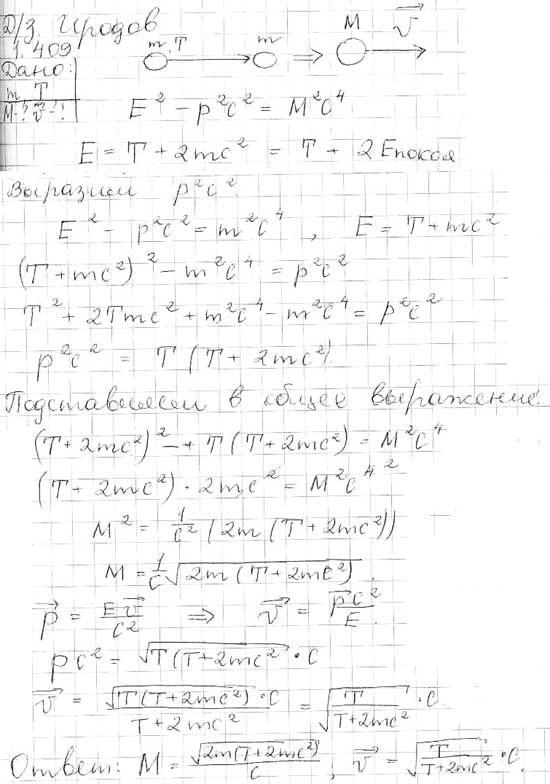 Д/з. Иродов
1.409
Дано:
m T
M-? v⃗-?
m, T m ⇒ M v⃗
E² - p²c² = M²c⁴
E = T + 2mc² = T + 2Eпокоя
Выразим p²c²
E² - p²c² = m²c⁴ , E = T + mc²
(T + mc²)² - m²c⁴ = p²c²
T² + 2Tmc² + m²c⁴ - m²c⁴ = p²c²
p²c² = T(T + 2mc²)
Подставляем в общее выражение:
(T + 2mc²)² - T(T + 2mc²) = M²c⁴
(T + 2mc²) · 2mc² = M²c⁴
M² = 1/c² (2m(T + 2mc²))
M = 1/c √(2m(T + 2mc²))
p⃗ = Ev⃗/c² ⇒ v⃗ = p⃗c²/E
pc² = √(T(T + 2mc²)) · c
v⃗ = √(T(T + 2mc²)) · c/(T + 2mc²) = √(T/(T + 2mc²)) · c
Ответ: M = √(2m(T + 2mc²))/c ; v⃗ = √(T/(T + 2mc²)) · c